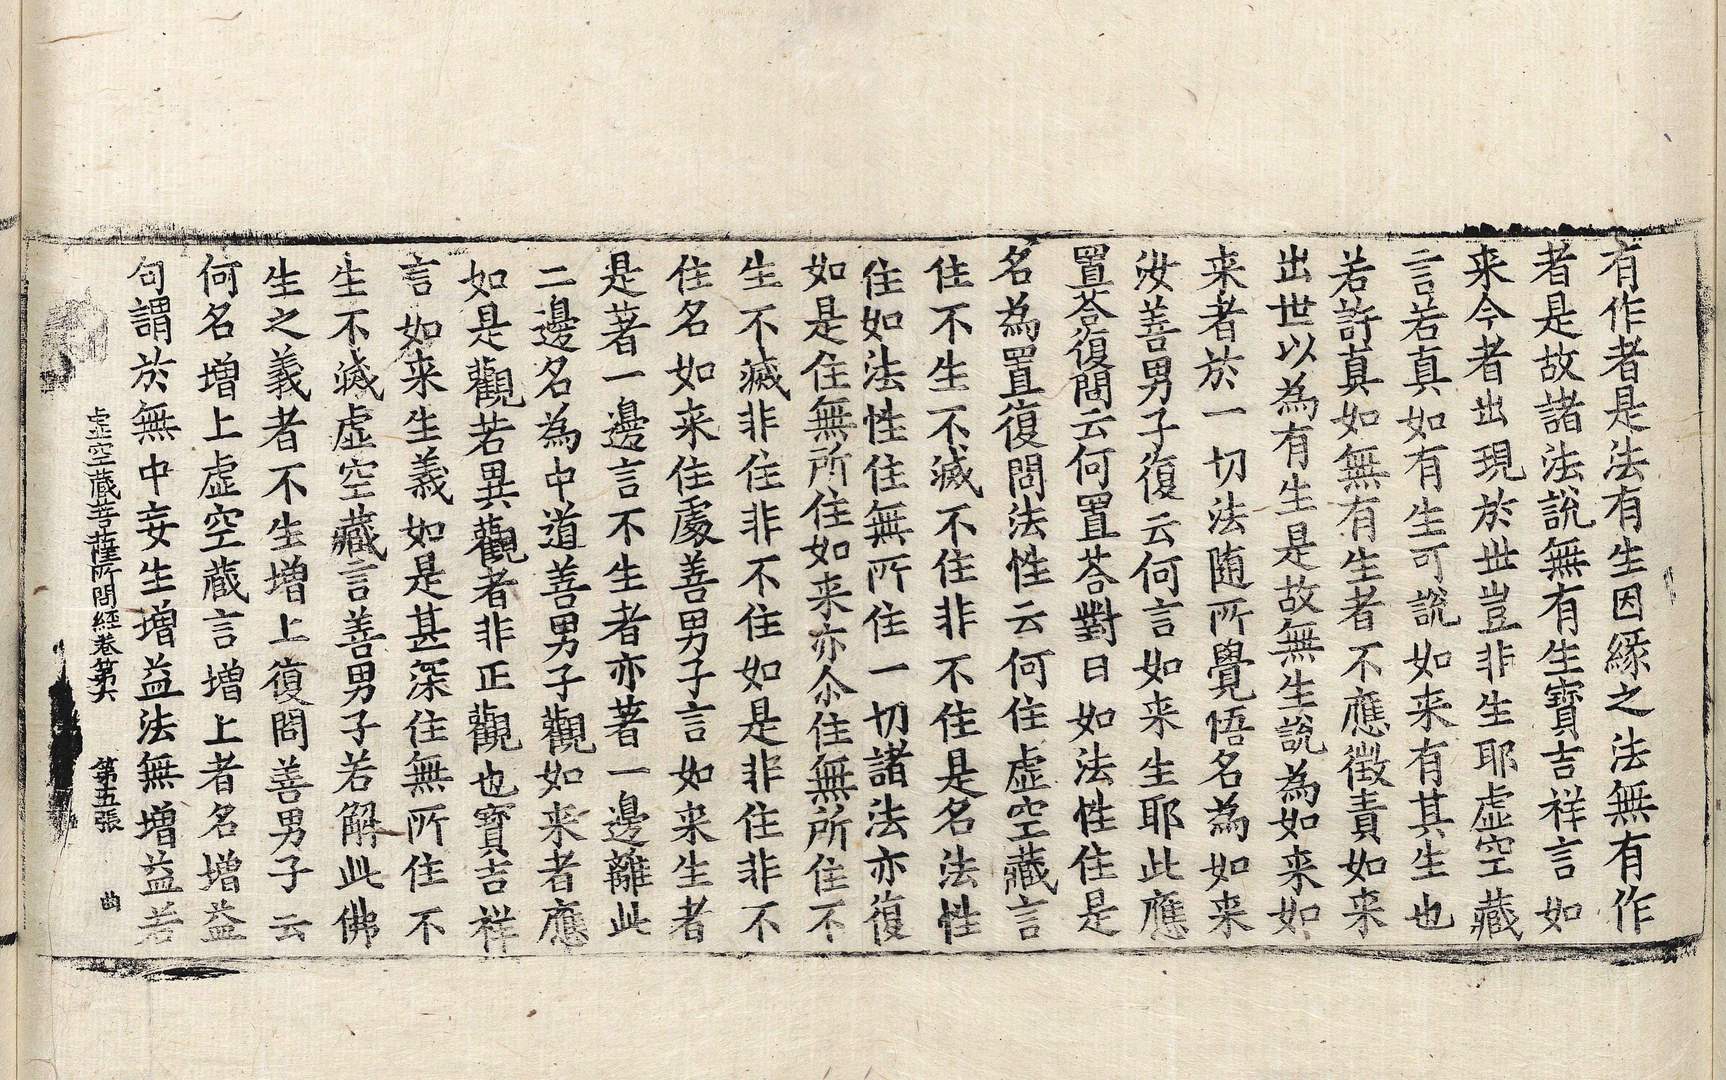 有作者是法有生因緣之法無有作
者是故諸法說無有生寶吉祥言如
来今者出現於世豈非生耶虛空藏
言若真如有生可說如来有其生也
若許真如無有生者不應徵責如来
出世以為有生是故無生說為如来如
来者於一切法随所覺悟名為如来
汝善男子復云何言如来生耶此應
置荅復問云何置荅對曰如法性住是
名為置復問法性云何住虛空藏言
住不生不滅不住非不住是名法性
住如法性住無所住一切諸法亦復
如是住無所住如来亦尒住無所住不
生不滅非住非不住如是非住非不
住名如来住處善男子言如来生者
是著一邊言不生者亦著一邊離此
二邊名為中道善男子觀如来者應
如是觀若異觀者非正觀也寶吉祥
言如来生義如是甚深住無所住不
生不滅虛空藏言善男子若解此佛
生之義者不生增上復問善男子云
何名增上虛空藏言增上者名增益
句謂於無中妄生增益法無增益若
虛空藏菩薩所問經卷第六 第五張 曲